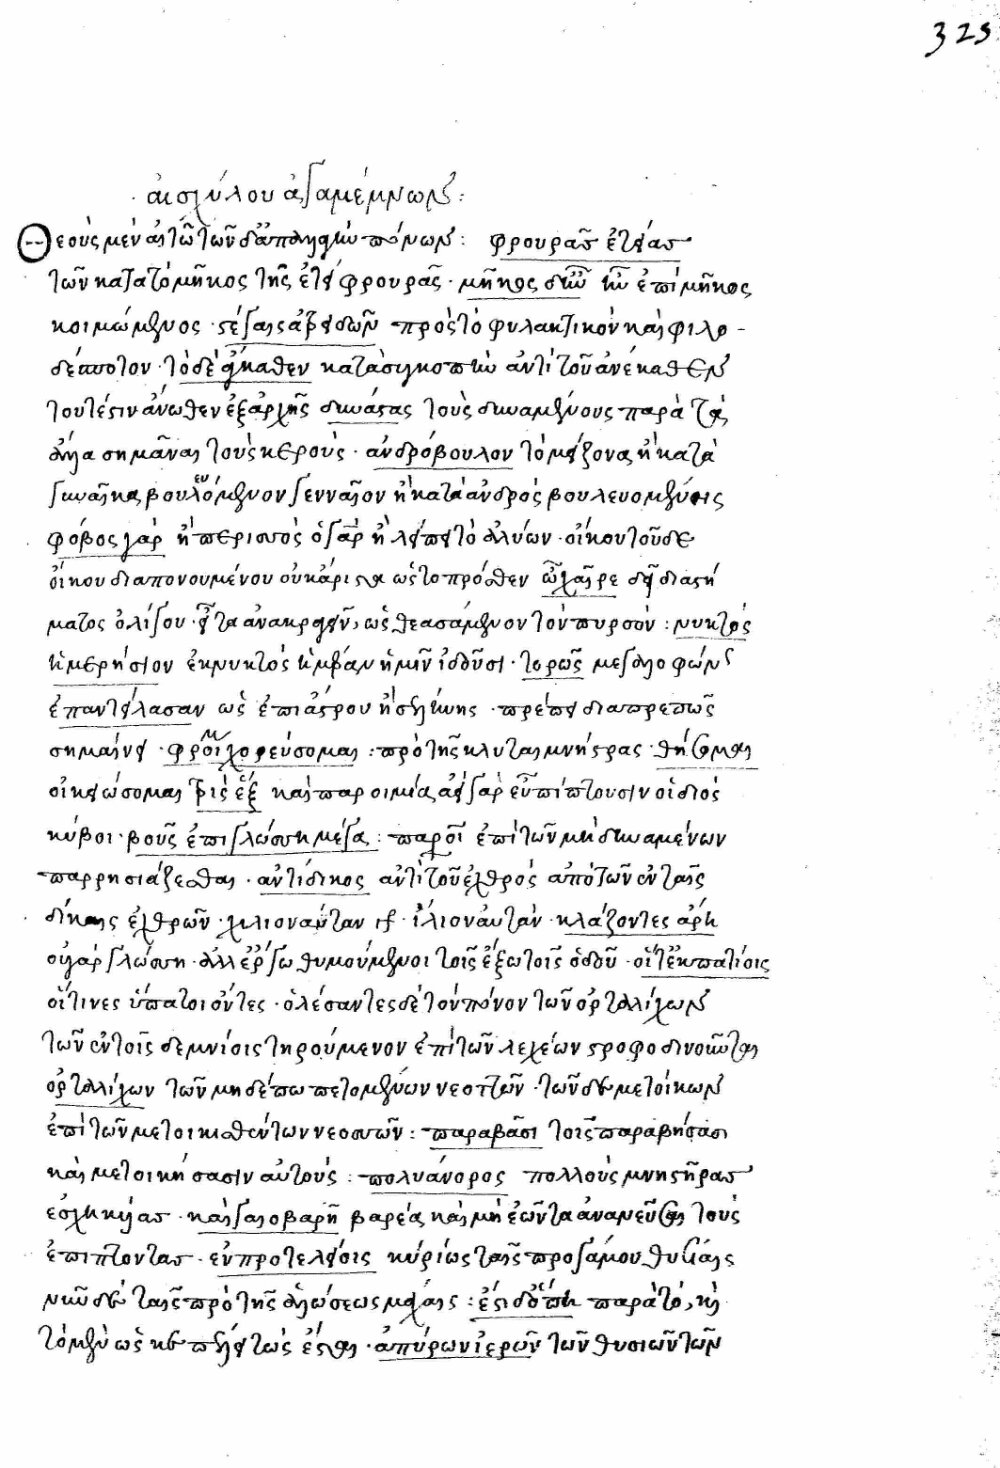 325
αἰσχύλου ἀγαμέμνων:
Θεοὺς μὲν αἰτῶ τῶνδ' ἀπαλλαγὴν πόνων: φρουρᾶς ἐτείας
τῶν κατὰ τὸ μῆκος τῆς ἐτεί φρουρᾶς · μῆκος ἐπὶ μῆκος
κοιμώμενος · στέγαις ἀτρειδῶν πρὸς τὸ φυλακτικὸν καὶ φιλο-
δέσποτον · τὸ δὲ ἄγκαθεν κατὰ συγκοπὴν ἀντὶ τοῦ ἀνέκαθεν
τουτέστιν ἄνωθεν ἐξ ἀρχῆς δυνάστας τοὺς δυναμένους παρὰ
σημᾶναι τοὺς κερούς · ἀνδρόβουλον τὸ μείζονα ἢ κατὰ
γυναῖκα βουλευόμενον γενναῖον ἢ κατὰ ἀνδρὸς βουλευομένης
φόβος γὰρ ἢ περισσὸς ὁ γὰρ ἢ λείπει τὸ ἀλύων · οἴκου τοῦδε
οἴκου διαπονουμένου οὐκ ἄριστα ὡς τὸ πρόσθεν ὦ χαῖρε δεῖ διαστή
ματος ὀλίγου · εἶτα ἀνακραγεῖν, ὡς θεασάμενον τὸν πυρσόν: νυκτὸς
ἡμερήσιον ἐκ νυκτὸς ἡμέραν ἡμῖν ἰδοῦσι · τορῶς μεγαλοφών
ἐπαντείλασαν ὡς ἐπὶ ἄστρου ἢ σελήνης · πρέπει διαπρεπῶς
σημαίνει · φροίμ χορεύσομαι: πρὸ τῆς κλυταιμνήστρας · θήσομαι
οἰκειώσομαι τρὶς ἓξ καὶ παροιμία ἀεὶ γὰρ εὖ πίπτουσιν οἱ διὸς
κύβοι · βοῦς ἐπὶ γλώσσῃ μέγας: παροι ἐπὶ τῶν μὴ δυναμένων
παρρησιάζεσθαι · ἀντίδικος ἀντὶ τοῦ ἐχθρὸς ἀπὸ τῶν ἐν ταῖς
δίκαις ἐχθρῶν · χιλιοναύταν · ἰλιοναύταν · κλάζοντες ἄρη
οὐ γὰρ γλώσσῃ · ἀλλ' ἔργῳ θυμούμενοι τοῖς ἔξω τοῖς ὁδοῦ · οἵτ' ἐκπατίοις
οἵτινες ὕπατοι ὄντες · ὀλέσαντες δὲ τὸν πόνον τῶν ὀρταλίχων
τῶν ἐν τοῖς δεμνίοις τηρούμενον ἐπὶ τῶν λεχέων στροφοδινοῦνται
ὀρταλίχων τῶν μηδέπω πετομένων νεοττῶν · τῶνδε μετοίκων
ἐπὶ τῶν μετοικισθέντων νεοσσῶν: παραβᾶσι τοῖς παραβήσασι
καὶ μετοικήσασιν αὐτούς: πολυάνορος πολλοὺς μνηστῆρας
ἐσχηκυίας · καὶ γυιοβαρῆ βαρέα καὶ μὴ ἐῶντα ἀνανεῦσαι τοὺς
ἐπιπτοντας · ἐν προτελείοις κυρίως ταῖς προ γάμου θυσίαις
νῦν δὲ ταῖς πρὸ τῆς ἁλώσεως μάχαις: ἔστι δ' ὅπη παρὰ τό, καὶ
τὸ μὲν ὡς ἔσται · ἀπύρων ἱερῶν τῶν θυσιῶν τῶν